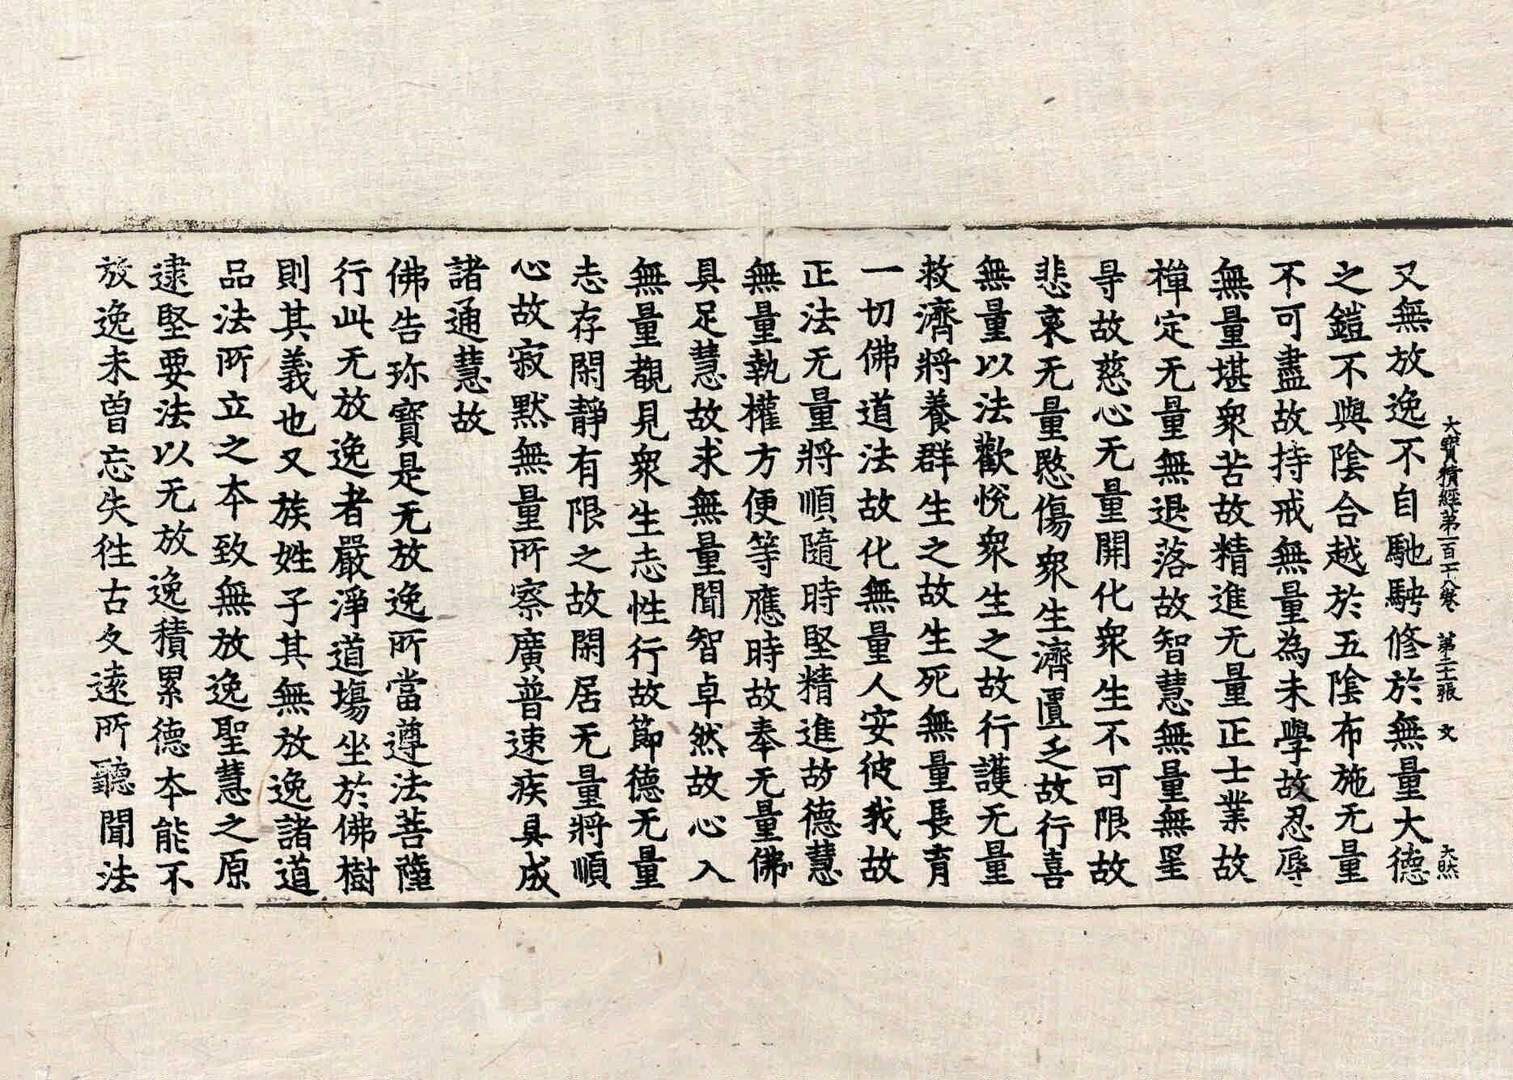 大寶積經第一百十八卷 第二十張 文 大煞
又無放逸不自馳騁修於無量大德
之鎧不與陰合越於五陰布施无量
不可盡故持戒無量為未學故忍辱
無量堪衆苦故精進无量正士業故
禪定无量無退落故智慧無量無罣
导故慈心无量開化衆生不可限故
悲哀无量愍傷衆生濟匱乏故行喜
無量以法歡悅衆生之故行護无量
救濟將養群生之故生死無量長育
一切佛道法故化無量人安彼我故
正法无量將順隨時堅精進故德慧
無量執權方便等應時故奉无量佛
具足慧故求無量聞智卓然故心入
無量觀見衆生志性行故節德无量
志存閑靜有限之故閑居无量將順
心故寂默無量所察廣普速疾具成
諸通慧故
佛告珎寶是无放逸所當遵法菩薩
行此无放逸者嚴淨道場坐於佛樹
則其義也又族姓子其無放逸諸道
品法所立之本致無放逸聖慧之原
逮堅要法以无放逸積累德本能不
放逸未曽忘失徃古夂遠所聽聞法